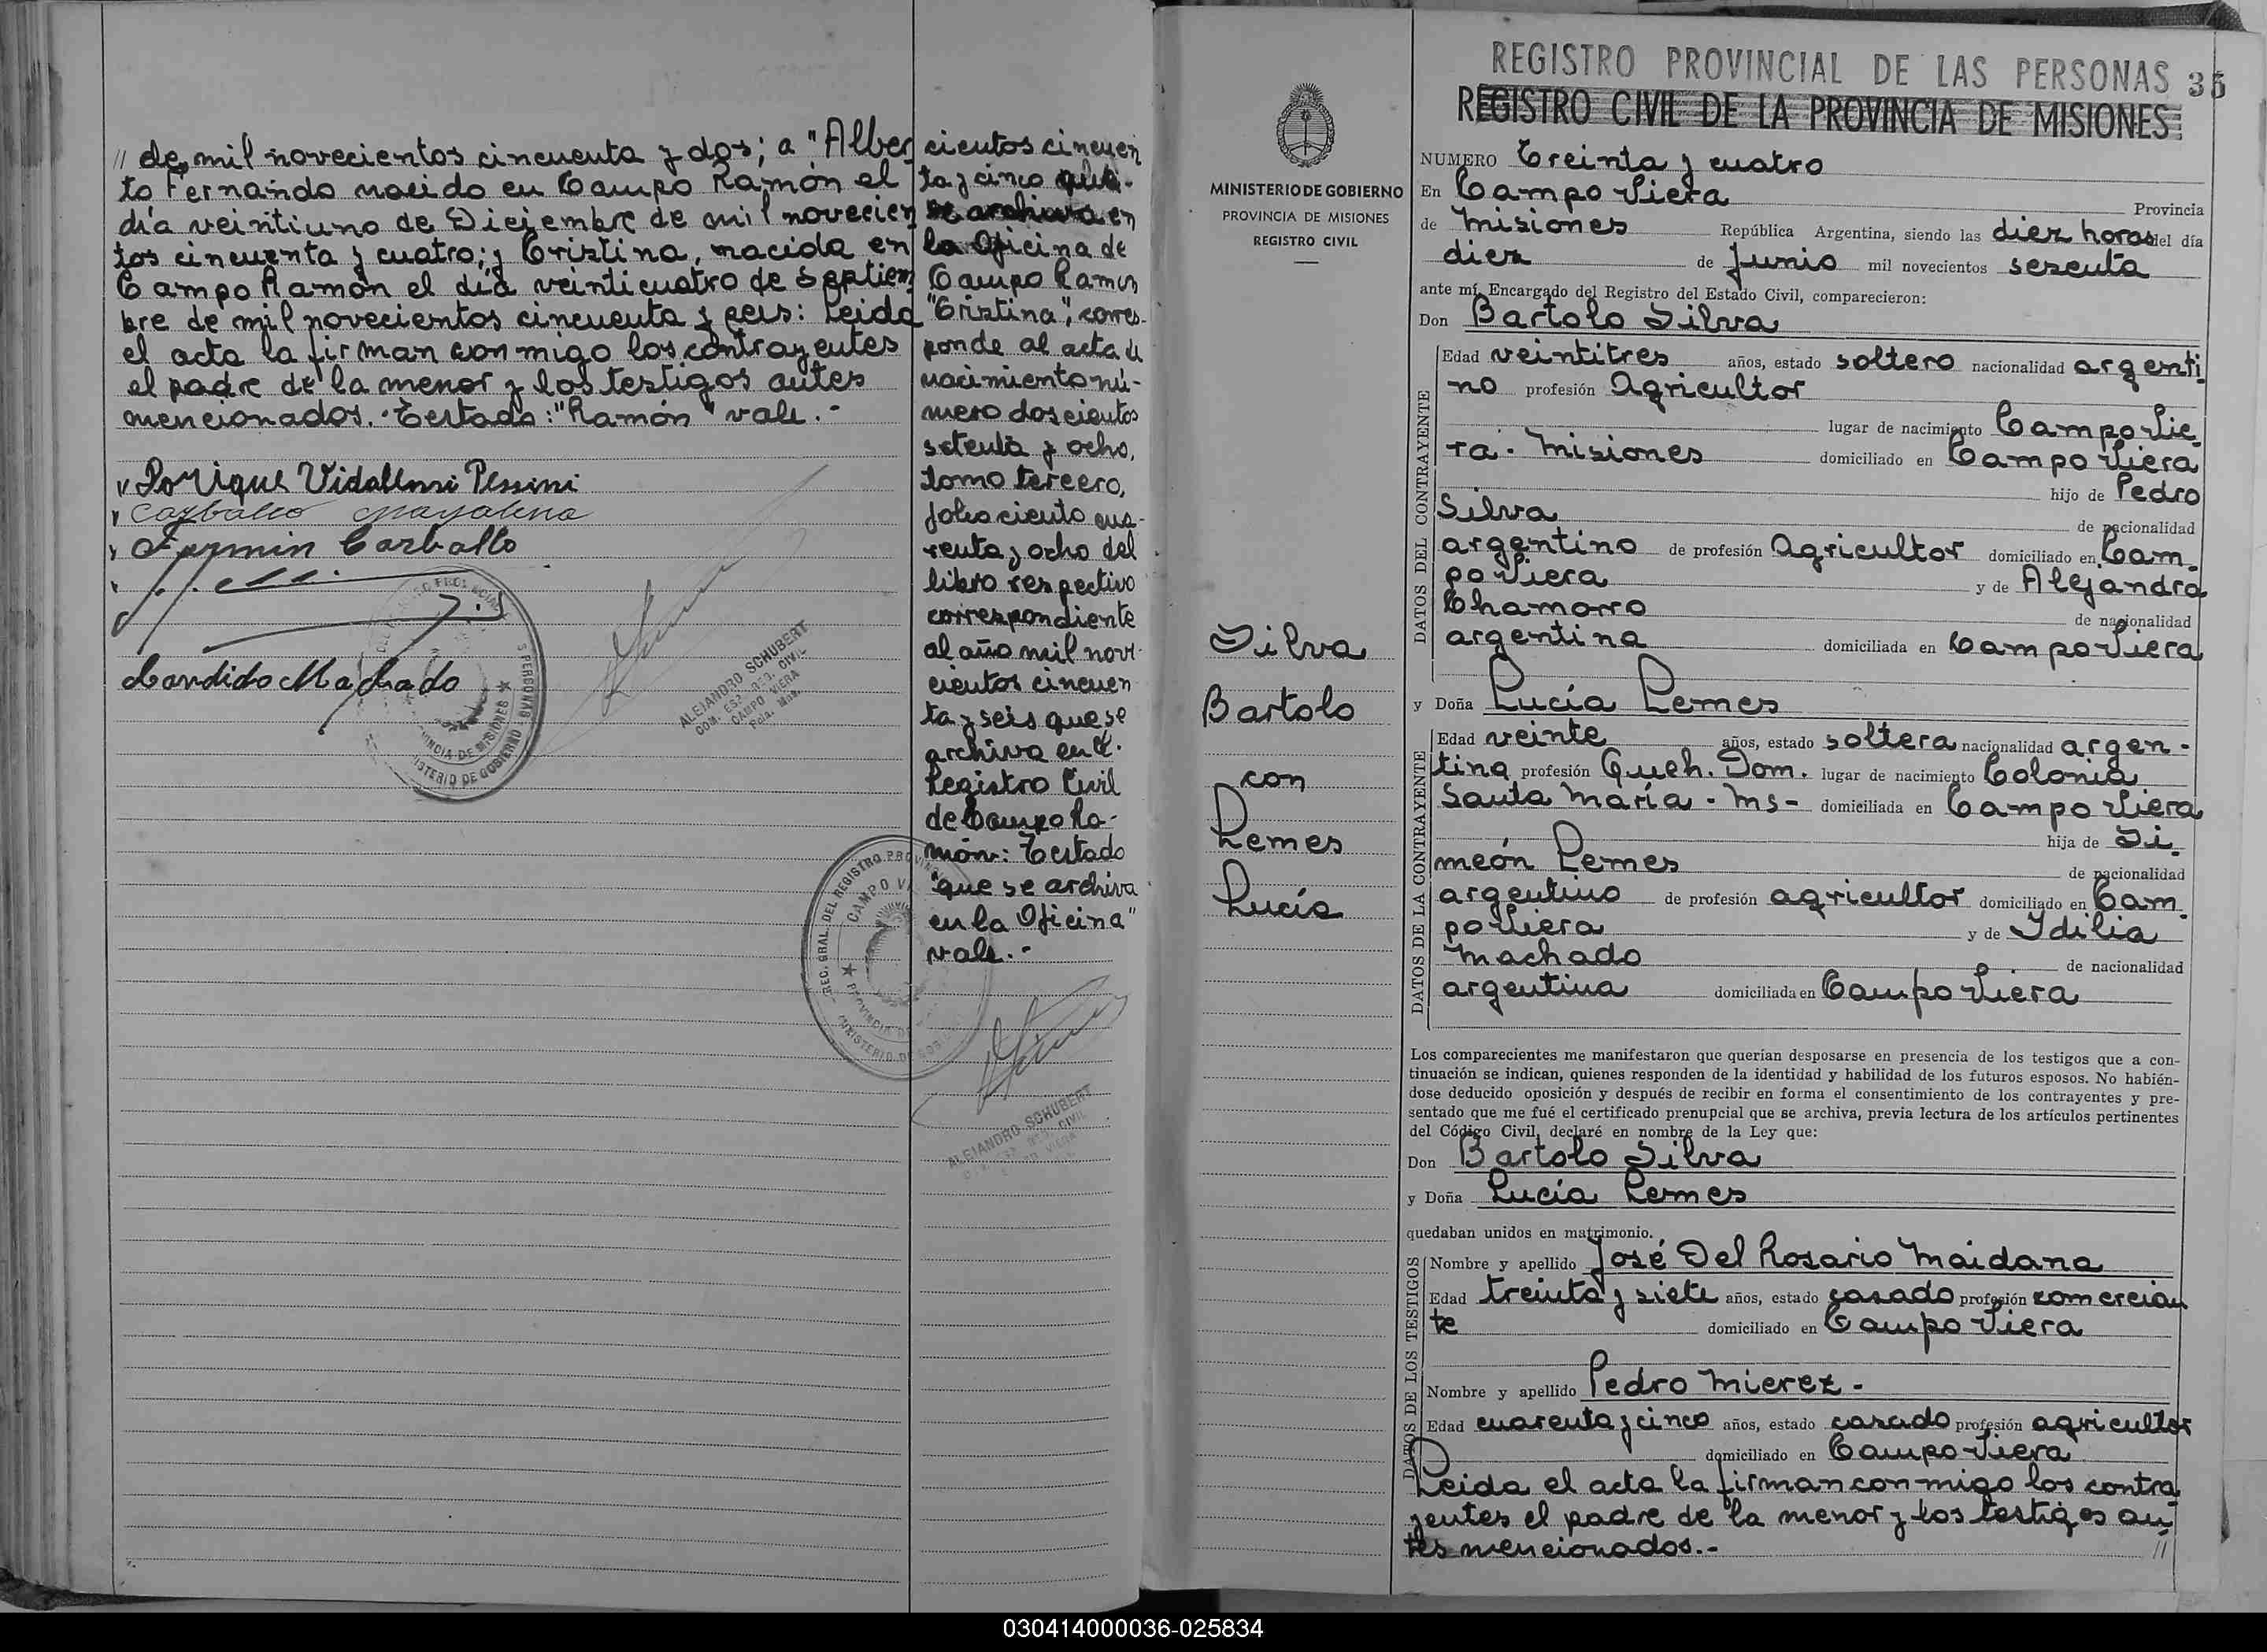 // de mil novecientos cincuenta y dos; a "Alber
to Fernando nacido en Campo Ramón el
día veintiuno de Diciembre de mil novecien
tos cincuenta y cuatro; y Cristina, nacida en
Campo Ramón el día veinticuatro de Septiem
bre de mil novecientos cincuenta y seis: Leida
el acta la firman conmigo los contrayentes
el padre de la menor y los testigos antes
mencionados. Testado: "Ramón" vale.-
Carballo
Fermin Carballo
Candido Machado
ALEJANDRO SCHUBERT
REG. CIVIL
CAMPO VIERA
Pcia. Mnes.
PROVINCIA DE MISIONES
MINISTERIO DE GOBIERNO
cientos cincuen
ta y cinco que
se archiva en
la Oficina de
Campo Ramon
"Cristina", corres-
ponde al acta de
nacimiento nú-
mero doscientos
setenta y ocho,
tomo tercero,
folio ciento cua-
renta y ocho del
libro respectivo
correspondiente
al año mil nove-
cientos cincuen
ta y seis que se
archiva en el
Registro Civil
de Campo Ra-
món: Testado
"que se archiva
en la Oficina"
vale.-
REG. GRAL. DEL REGISTRO PROVINCIAL
CAMPO VIERA
ALEJANDRO SCHUBERT
MINISTERIO DE GOBIERNO
PROVINCIA DE MISIONES
REGISTRO CIVIL
Silva
Bartolo
con
Lemes
Lucía
REGISTRO PROVINCIAL DE LAS PERSONAS 35
REGISTRO CIVIL DE LA PROVINCIA DE MISIONES
NUMERO Treinta y cuatro
En Campo Viera Provincia
de Misiones República Argentina, siendo las diez horas del día
diez de Junio mil novecientos sesenta
ante mí, Encargado del Registro del Estado Civil, comparecieron:
Don Bartolo Silva
DATOS DEL CONTRAYENTE
Edad veintitres años, estado soltero nacionalidad argenti
no profesión Agricultor
lugar de nacimiento Campo Vie
ra. Misiones domiciliado en Campo Viera
hijo de Pedro
Silva de nacionalidad
argentino de profesión Agricultor domiciliado en Cam-
po Viera y de Alejandra
Chamorro de nacionalidad
argentina domiciliada en Campo Viera
y Doña Lucía Lemes
DATOS DE LA CONTRAYENTE
Edad veinte años, estado soltera nacionalidad argen-
tina profesión Queh. Dom. lugar de nacimiento Colonia
Santa María - Ms- domiciliada en Campo Viera
hija de Si-
meón Lemes de nacionalidad
argentino de profesión agricultor domiciliado en Cam-
po Viera y de Idilia
Machado de nacionalidad
argentina domiciliada en Campo Viera
Los comparecientes me manifestaron que querían desposarse en presencia de los testigos que a con-
tinuación se indican, quienes responden de la identidad y habilidad de los futuros esposos. No habién-
dose deducido oposición y después de recibir en forma el consentimiento de los contrayentes y pre-
sentado que me fué el certificado prenupcial que se archiva, previa lectura de los artículos pertinentes
del Código Civil, declaré en nombre de la Ley que:
Don Bartolo Silva
y Doña Lucía Lemes
quedaban unidos en matrimonio.
DATOS DE LOS TESTIGOS
Nombre y apellido José Del Rosario Maidana
Edad treinta y siete años, estado casado profesión comercian
te domiciliado en Campo Viera
Nombre y apellido Pedro Mierez.-
Edad cuarenta y cinco años, estado casado profesión agricultor
domiciliado en Campo Viera
Leida el acta la firman conmigo los contra
yentes el padre de la menor y los testigos an
tes mencionados.- //
030414000036-025834